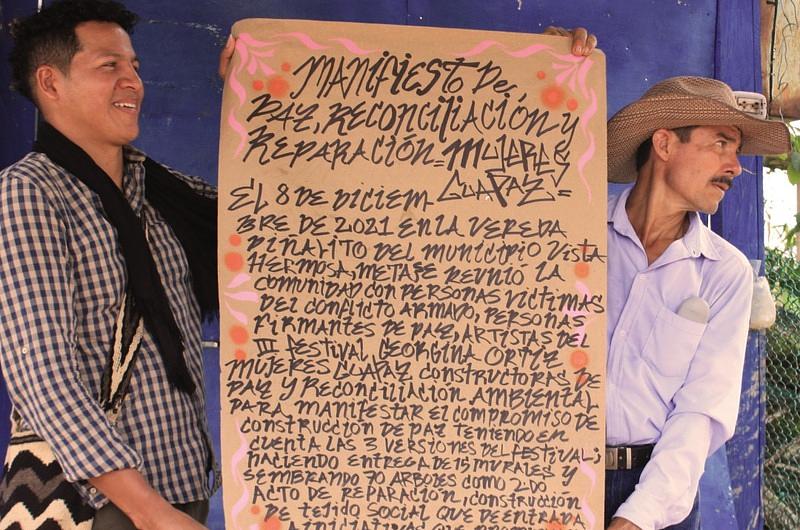 MANIFIESTO DE
PAZ, RECONCILIACIÓN Y
REPARACIÓN = MUJERES
GUAPAZ =
EL 8 DE DICIEM-
BRE DE 2021 EN LA VEREDA
PIÑALITO DEL MUNICIPIO VISTA
HERMOSA, META SE REUNIÓ LA
COMUNIDAD CON PERSONAS VICTIMAS
DEL CONFLICTO ARMADO, PERSONAS
FIRMANTES DE PAZ, ARTISTAS DEL
III FESTIVAL GEORGINA ORTIZ
MUJERES GUAPAZ CONSTRUCTORAS DE
PAZ Y RECONCILIACIÓN AMBIENTAL
PARA MANIFESTAR EL COMPROMISO DE
CONSTRUCCIÓN DE PAZ TENIENDO EN
CUENTA LAS 3 VERSIONES DEL FESTIVAL;
HACIENDO ENTREGA DE 15 MURALES Y
SEMBRANDO 70 ARBOLES COMO 2DO
ACTO DE REPARACIÓN, CONSTRUCCIÓN
DE TEJIDO SOCIAL QUE DE ENTRADA
A INICIATIVAS QUE